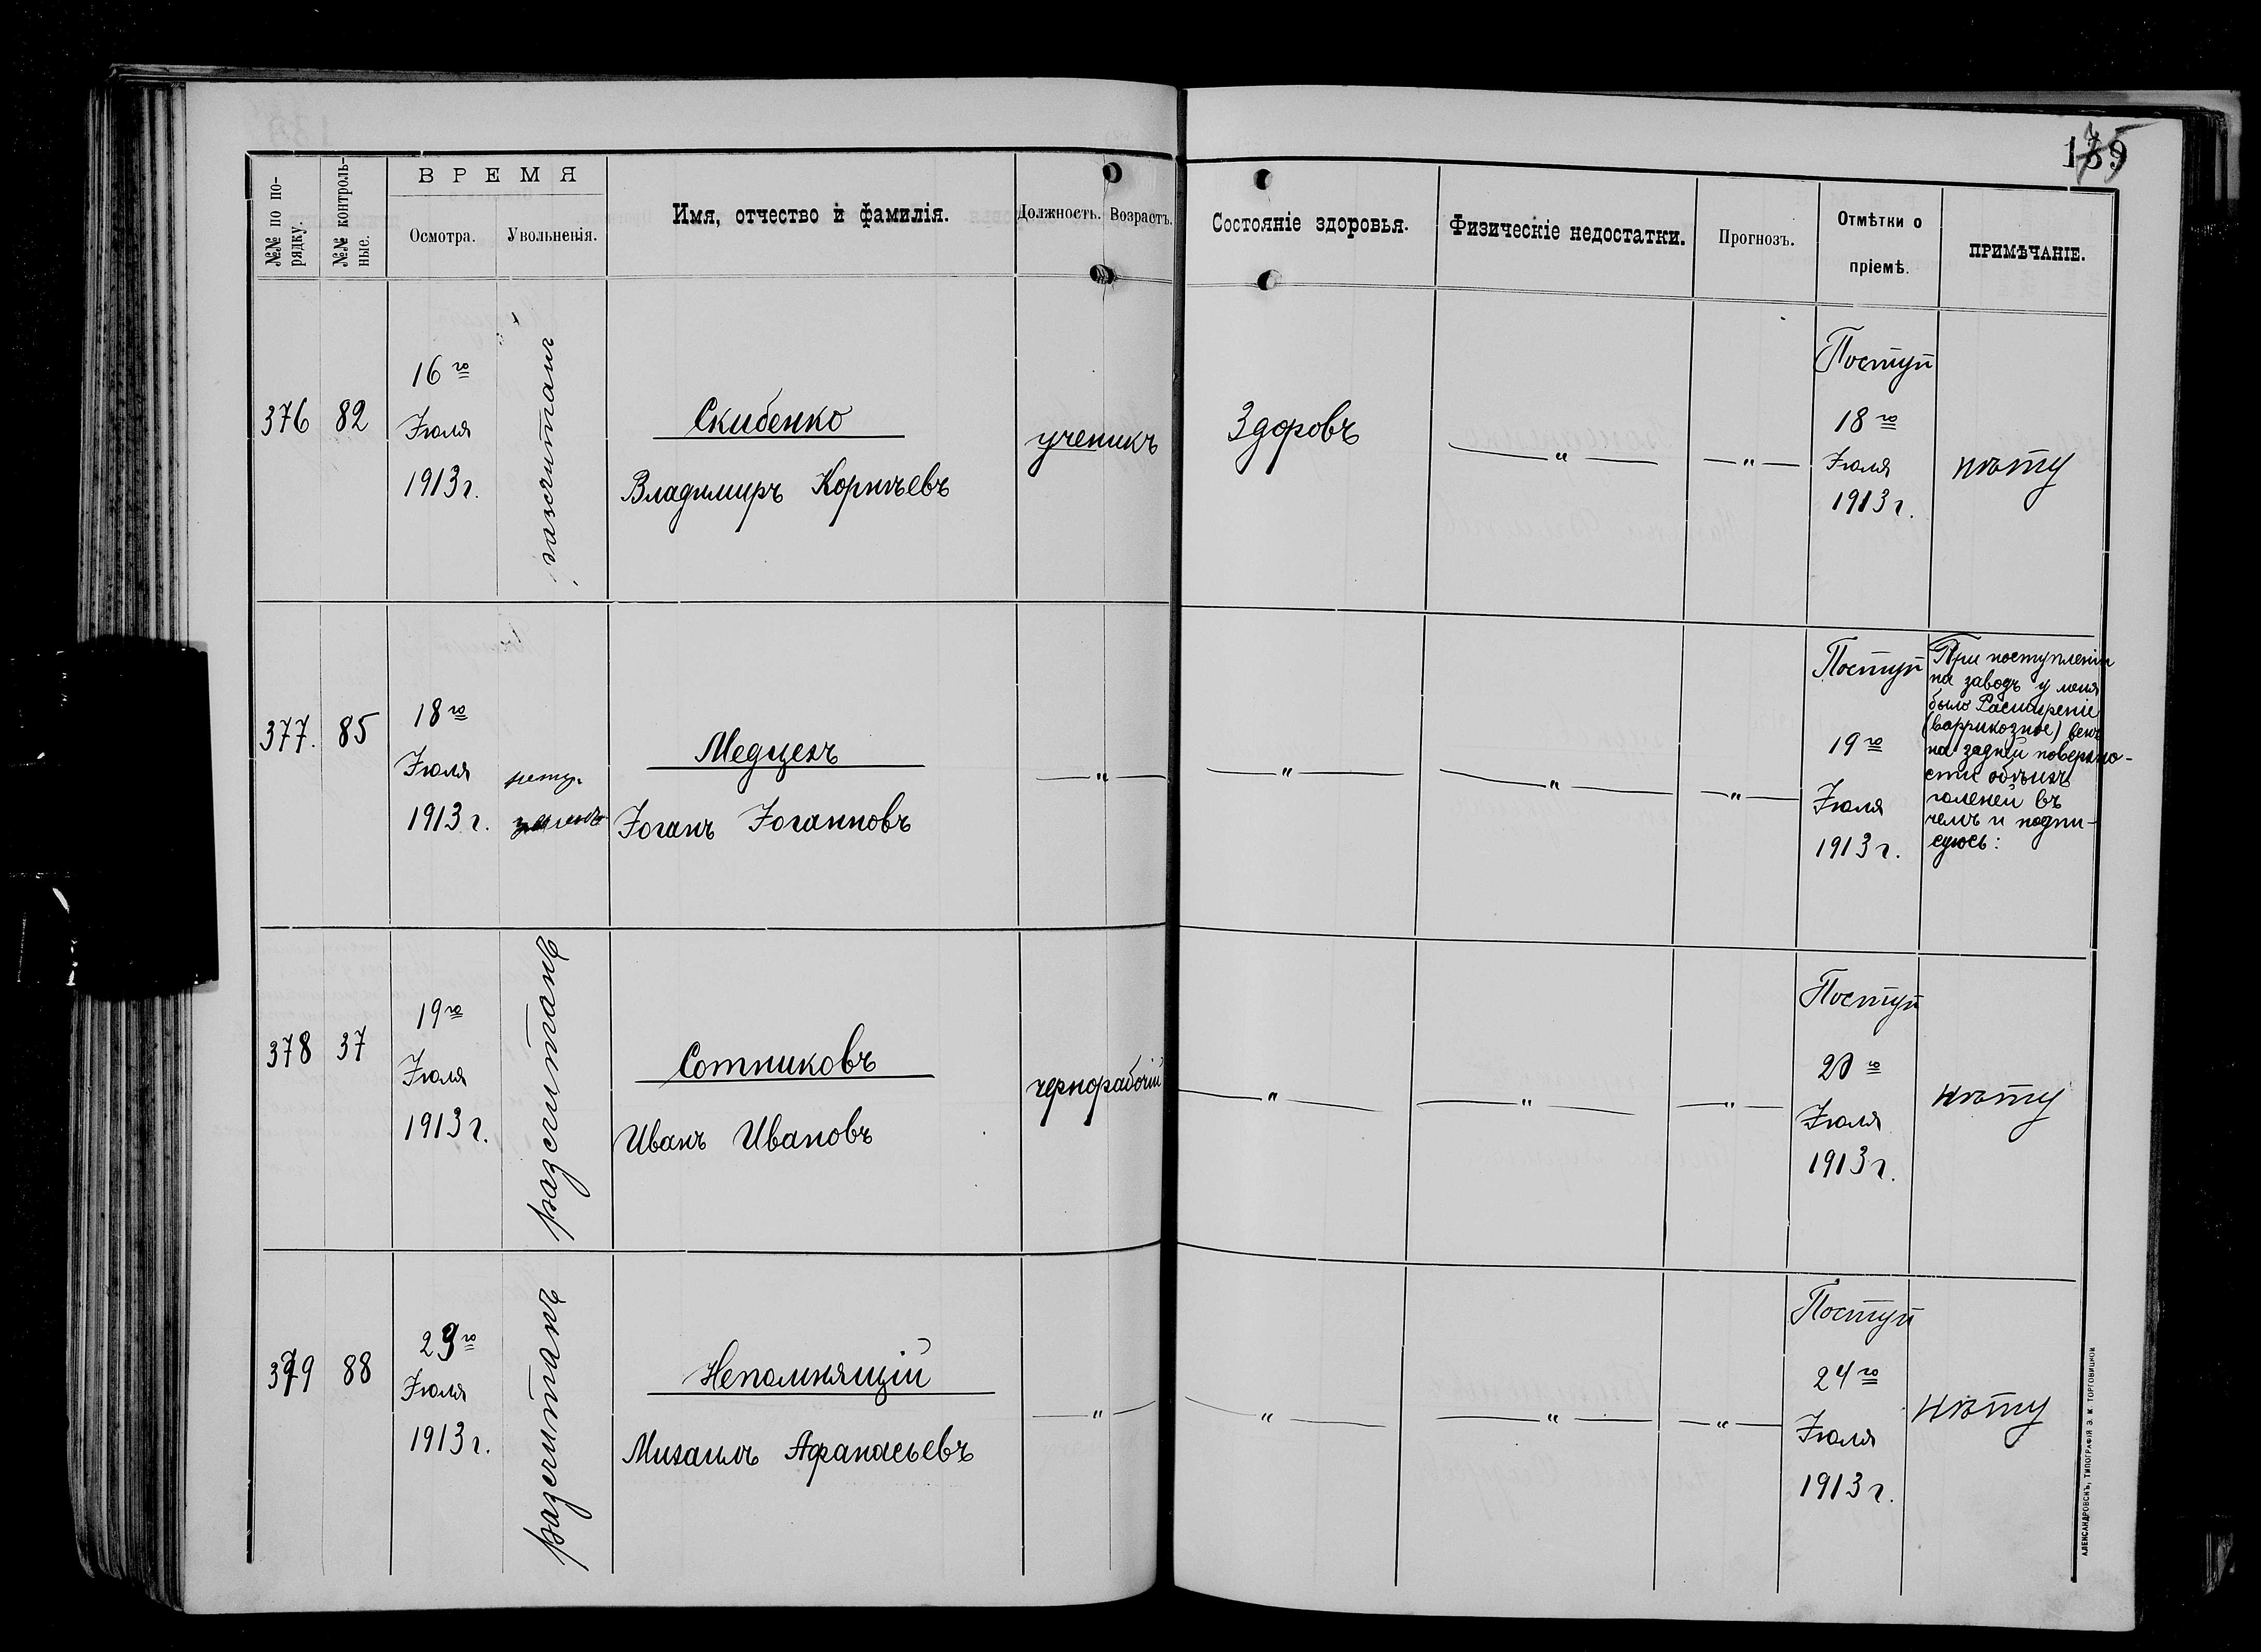 139
175
№№ по по-
рядку.
№№ контроль-
ные.
ВРЕМЯ
Осмотра.
Увольненія.
Имя, отчество и фамилія.
Должность.
Возрастъ.
Состояніе здоровья.
Физическіе недостатки.
Прогнозъ.
Отмѣтки о
пріемѣ.
ПРИМѢЧАНІЕ.
376
82
16го
Іюля
1913 г.
разсчитанъ
Скибенко
Владимиръ Корнѣевъ
ученикъ
Здоровъ
— " —
— " —
Поступ
18го
Іюля
1913 г.
нѣту
377.
85
18го
Іюля
1913 г.
Медцехъ
Іоганъ Іоганновъ
— " —
— " —
— " —
— " —
Поступ
19го
Іюля
1913 г.
При поступленіи
на заводъ у меня
было Расширеніе
(варрикозное) венъ
на задней поверхно-
сти обѣихъ
голеней въ
чемъ и подпи-
суюсь:
378
37
19го
Іюля
1913 г.
разсчитанъ
Сотниковъ
Иванъ Ивановъ
чернорабочій
— " —
— " —
— " —
Поступ
20го
Іюля
1913 г.
нѣту
379
88
23го
Іюля
1913 г.
разсчитанъ
Непомнящій
Михаилъ Афанасьевъ
— " —
— " —
— " —
— " —
Поступ
24го
Іюля
1913 г.
нѣту
АЛЕКСАНДРОВСКЪ, ТИПОГРАФІЯ Э. М. ТОРГОВИЦКОЙ